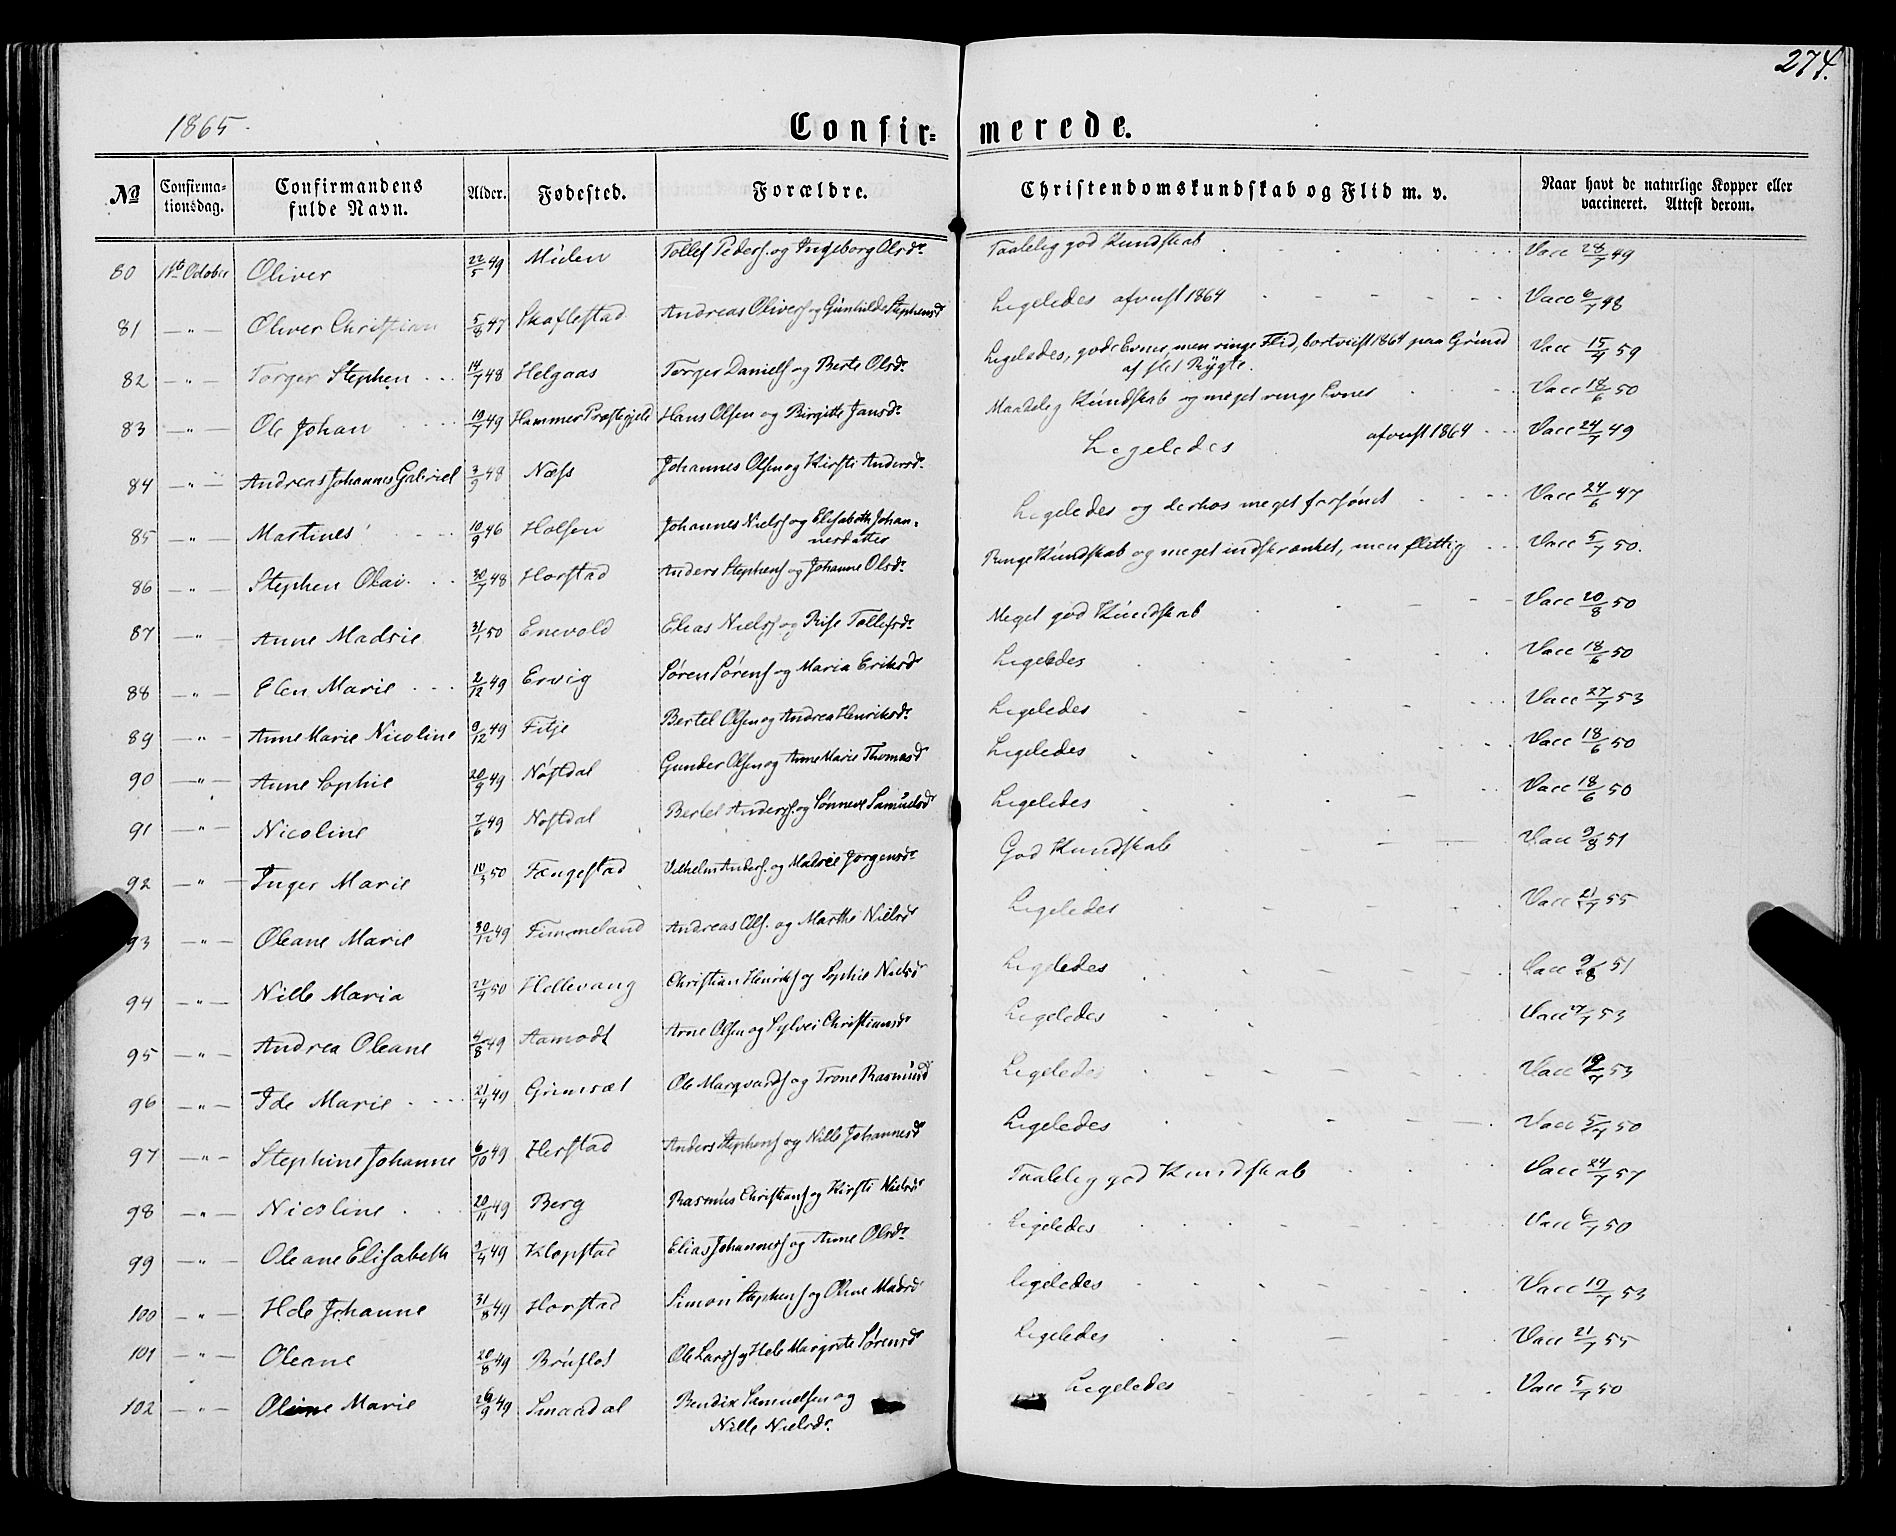 274.
1865.
Confir= merede.
No
Confirma-
tionsdag.
Confirmandens
fulde Navn.
Alder.
Fødested.
Forældre.
Christendomskundskab og Flid m. v.
Naar havt de naturlige Kopper eller
vaccineret. Attest derom.
80 1ste October Oliver 22/5 49 Miclen Tollef Peders. og Ingeborg Olsdr Taalelig god Kundskab Vacc 28/7 49
81 — " — Oliver Christian 5/8 47 Skaflestad Andreas Olivers og Gunhilde Stephensd Ligeledes afviist 1864 Vacc 6/7 48
82 — " — Torger Stephen 14/7 48 Helgaas Torger Daniels og Berte Olsdr Ligeledes, gode Evner, men ringe Flid, bortviist 1864 paa Grund
af slet Rygte. Vacc 15/9 59
83 — " — Ole Johan 19/7 49 Hammer Præstegjeld Hans Olsen og Birgitte Jansdr Maadelig Kundskab og meget ringe Evner Vacc 18/6 50
84 — " — Andreas Johannes Gabriel 3/9 48 Næss Johannes Olsen og Kirsti Andersdr Ligeledes afviist 1864 Vacc 24/7 49
85 — " — Martines 10/9 46 Holsen Johannes Niels og Elisabeth Johan-
nesdatter Ligeledes og derhos meget forsømt Vacc 24/6 47
86 — " — Stephen Olai 30/7 48 Horstad Anders Stephens og Johanne Olsdr Ringe Kundskab og meget indskrænket, men flittig Vacc 5/7 50.
87 — " — Anne Madsie 31/1 50 Enevold Elias Niels og Rise Tollefsdr Meget god Kundskab Vacc 20/8 50
88 — " — Elen Marie 2/12 49 Ervig Søren Sørens og Maria Eriksdr Ligeledes Vacc 18/6 50
89 — " — Anne Marie Nicoline 9/12 49 Fitje Bertel Olsen og Andrea Henriksdr Ligeledes Vacc 27/7 53
90 — " — Anne Sophie 20/9 49 Nøstdal Gunder Olsen og Anne Marie Thomasd Ligeledes Vacc 18/6 50
91 — " — Nicoline 7/6 49 Nøstdal Bertel Anders. og Sønneve Samuelsd Ligeledes Vacc 18/6 50
92 — " — Inger Marie 10/3 50 Fængestad Vilhelm Anders. og Madsie Jørgensdr God Kundskab Vacc 9/8 51
93 — " — Oleane Marie 30/12 49 Fimmeland Andreas Ols. og Marthe Nielsd Ligeledes Vacc 21/7 55
94 — " — Nille Maria 22/4 50 Hellevang Christian Henriks og Sophie Nielsd Ligeledes Vacc 9/8 51
95 — " — Andrea Oleane 4/8 49 Aamodt Arne Olsen og Sylvei Christiansdr Ligeledes Vacc 27/7 53
96 — " — Ide Marie 21/4 49 Grimsæt Ole Marqvards og Trone Rasmusd Ligeledes Vacc 19/7 53
97 — " — Stephine Johanne 6/10 49 Herstad Anders Stephens og Nille Johannesd Ligeledes Vacc 5/7 50
98 — " — Nicoline 20/11 49 Berg Rasmus Christians og Kirsti Nielsd Taalelig god Kundskab Vacc 24/7 57
99 — " — Oleane Elisabeth 9/4 49 Klopstad Elias Johannes og Anne Olsdr Ligeledes Vacc 6/7 50
100 — " — Hele Johanne 31/8 49 Horstad Simon Stephens og Oline Madsd ligeledes Vacc 19/7 53
101 — " — Oleane 20/8 49 Bruflot Ole Lars og Hele Margrete Sørensd Ligeledes Vacc 21/7 55
102 — " — Oline Marie 26/9 49 Smaadal Bendix Samuelsen og
Nille Nielsdr Ligeledes Vacc 5/7 50